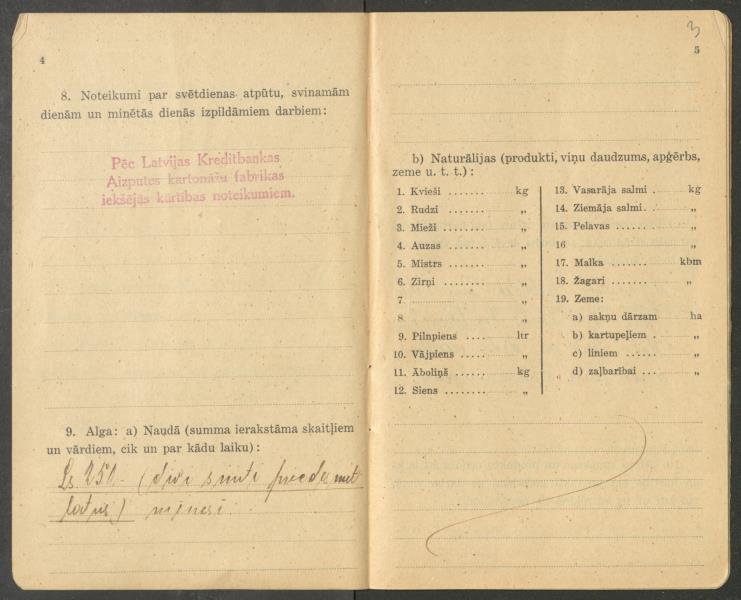 4
8. Noteikumi par svētdienas atpūtu, svinamām
dienām un minētās dienās izpildāmiem darbiem:
Pēc Latvijas Kreditbankas
Aizputes kartonāžu fabrikas
iekšējās kārtības noteikumiem.
9. Alga: a) Naudā (summa ierakstāma skaitļiem
un vārdiem, cik un par kādu laiku):
Ls 250 (divi simti piecdesmit
latus) mēnesī
3
5
b) Naturālijas (produkti, viņu daudzums, apģērbs,
zeme u. t. t.):
1. Kvieši ....... kg
2. Rudzi ....... „
3. Mieži ....... „
4. Auzas ....... „
5. Mistrs ....... „
6. Zirņi ....... „
7 ....... „
8 „
9. Pilnpiens .... ltr
10. Vājpiens ..... „
11. Āboliņš ...... kg
12. Siens ....... „
13. Vasarāja salmi . kg
14. Ziemāja salmi. . „
15. Pelavas ...... „
16 „
17. Malka ....... kbm
18. Žagari ....... „
19. Zeme:
a) sakņu dārzam ha
b) kartupeļiem . „
c) liniem ...... „
d) zaļbarībai ... „